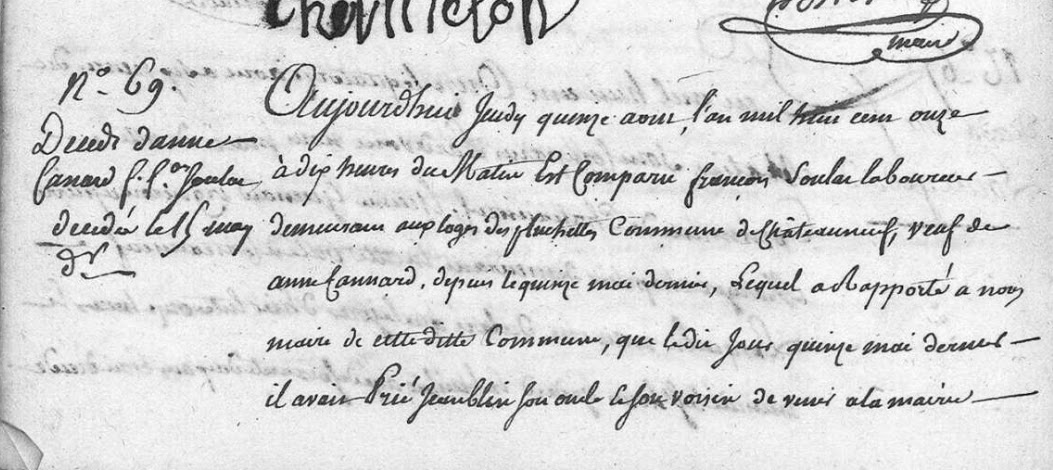 maire
N.º 69.
Decedt d'anne
Canard f. f.ois Soulat
decedée le 15 may
d.r
Aujourd'hui Jeudy quinze aout, l'an mil huit cent onze
à dix heures du Matin Est Comparu françois Soulat laboureur
demeurant aux loges des pluchettes Commune de Châteauneuf, veuf de
anne Cannard, depuis le quinze mai dernier, Lequel a Rapporté a nous
maire de cette ditte Commune, que ledit Jour quinze mai dernier
il avait Prié Jean blin son oncle & son voisin de venir a la mairie